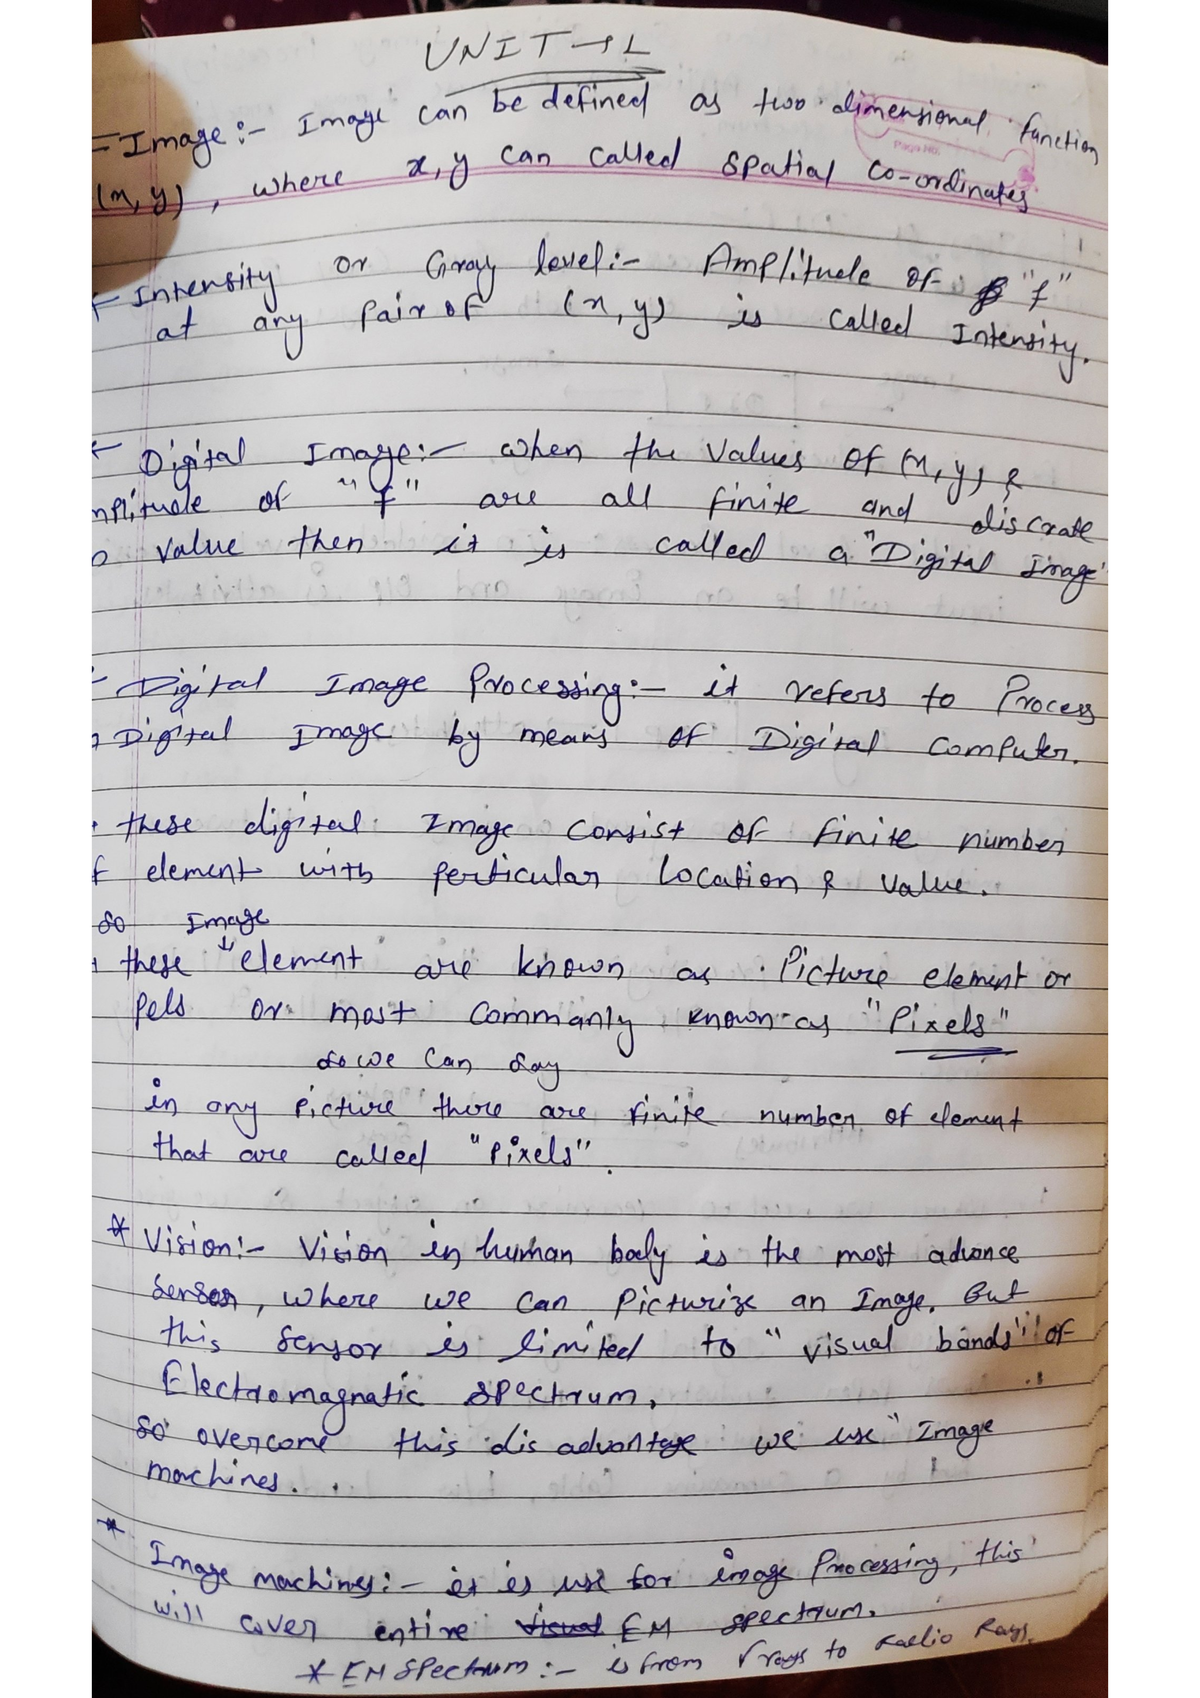 UNIT → 1
Image :- Image can be defined as two dimensional function
Page No.
(x, y), where x, y can called spatial co-ordinates
Intensity or Gray level :- Amplitude of "f"
at any pair of (x, y) is called Intensity.
Digital Image :- when the values of (x, y) &
mplitude of "f" are all finite and discrate
value then it is called a "Digital Image"
Digital Image Processing :- it refers to Process
Digital Image by means of Digital computer.
these digital Image consist of finite number
f element with perticular location & value.
so Image
these element are known as Picture element or
pels or most commanly known as "Pixels"
so we can say
in any picture there are finite number of element
that are called "pixels".
* Vision :- Vision in human body is the most advance
sensor, where we can picturize an Image. But
this sensor is limited to "visual bands" of
Electromagnatic spectrum.
so overcome this dis advantage we use "Image
machines.
* Image machines :- it is use for image processing, this
will cover entire visual EM spectrum.
* EM spectrum :- is from γ rays to Radio Rays.